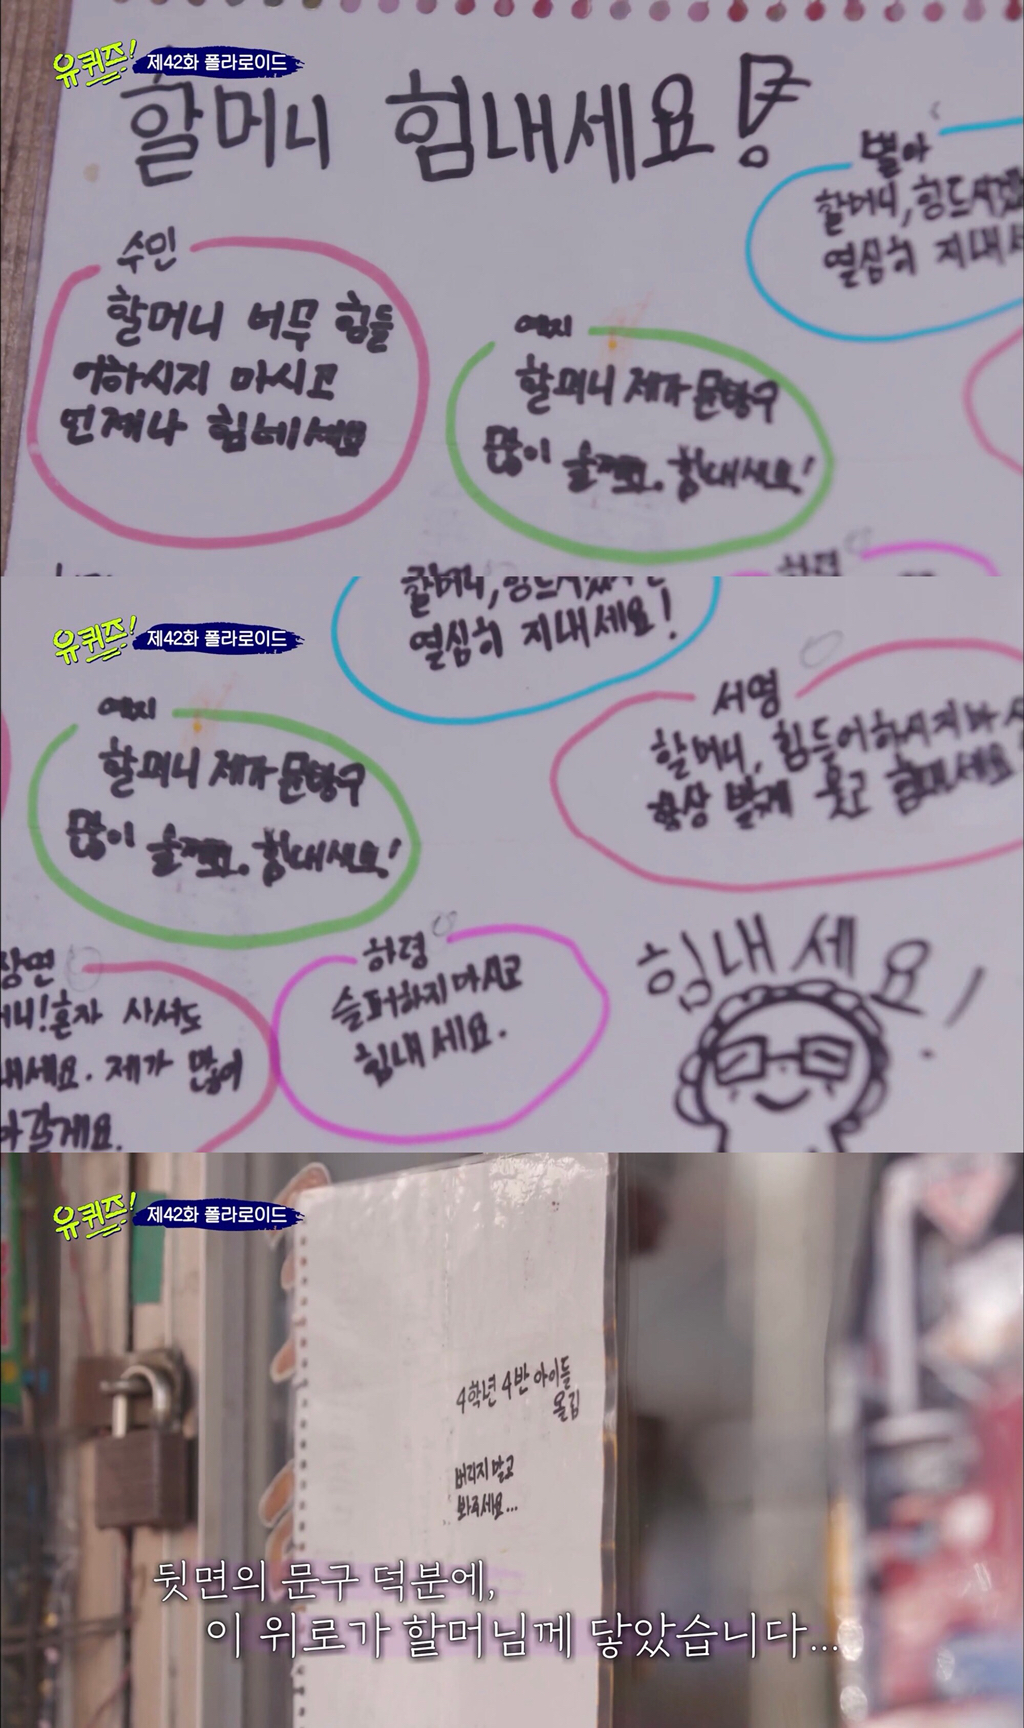 유퀴즈! 제42화 폴라로이드
할머니 힘내세요!
별아
할머니, 힘드시겠
열심히 지내세
수민
할머니 너무 힘들
어하시지 마시고
언제나 힘내세요
예지
할머니 제가 문방구
많이 올게요. 힘내세요!
하령
유퀴즈! 제42화 폴라로이드
할머니, 힘드시겠
열심히 지내세요!
예지
할머니 제가 문방구
많이 올게요. 힘내세요!
서영
할머니, 힘들어하시지마시
항상 밝게 웃고 힘내세요
상면
머니! 혼자 사셔도
내세요. 제가 많이
아갈게요.
하령
슬퍼하지마시고
힘내세요.
힘내세요!
유퀴즈! 제42화 폴라로이드
4학년 4반 아이들
올림
버리지 말고
봐주세요...
뒷면의 문구 덕분에,
이 위로가 할머님께 닿았습니다...